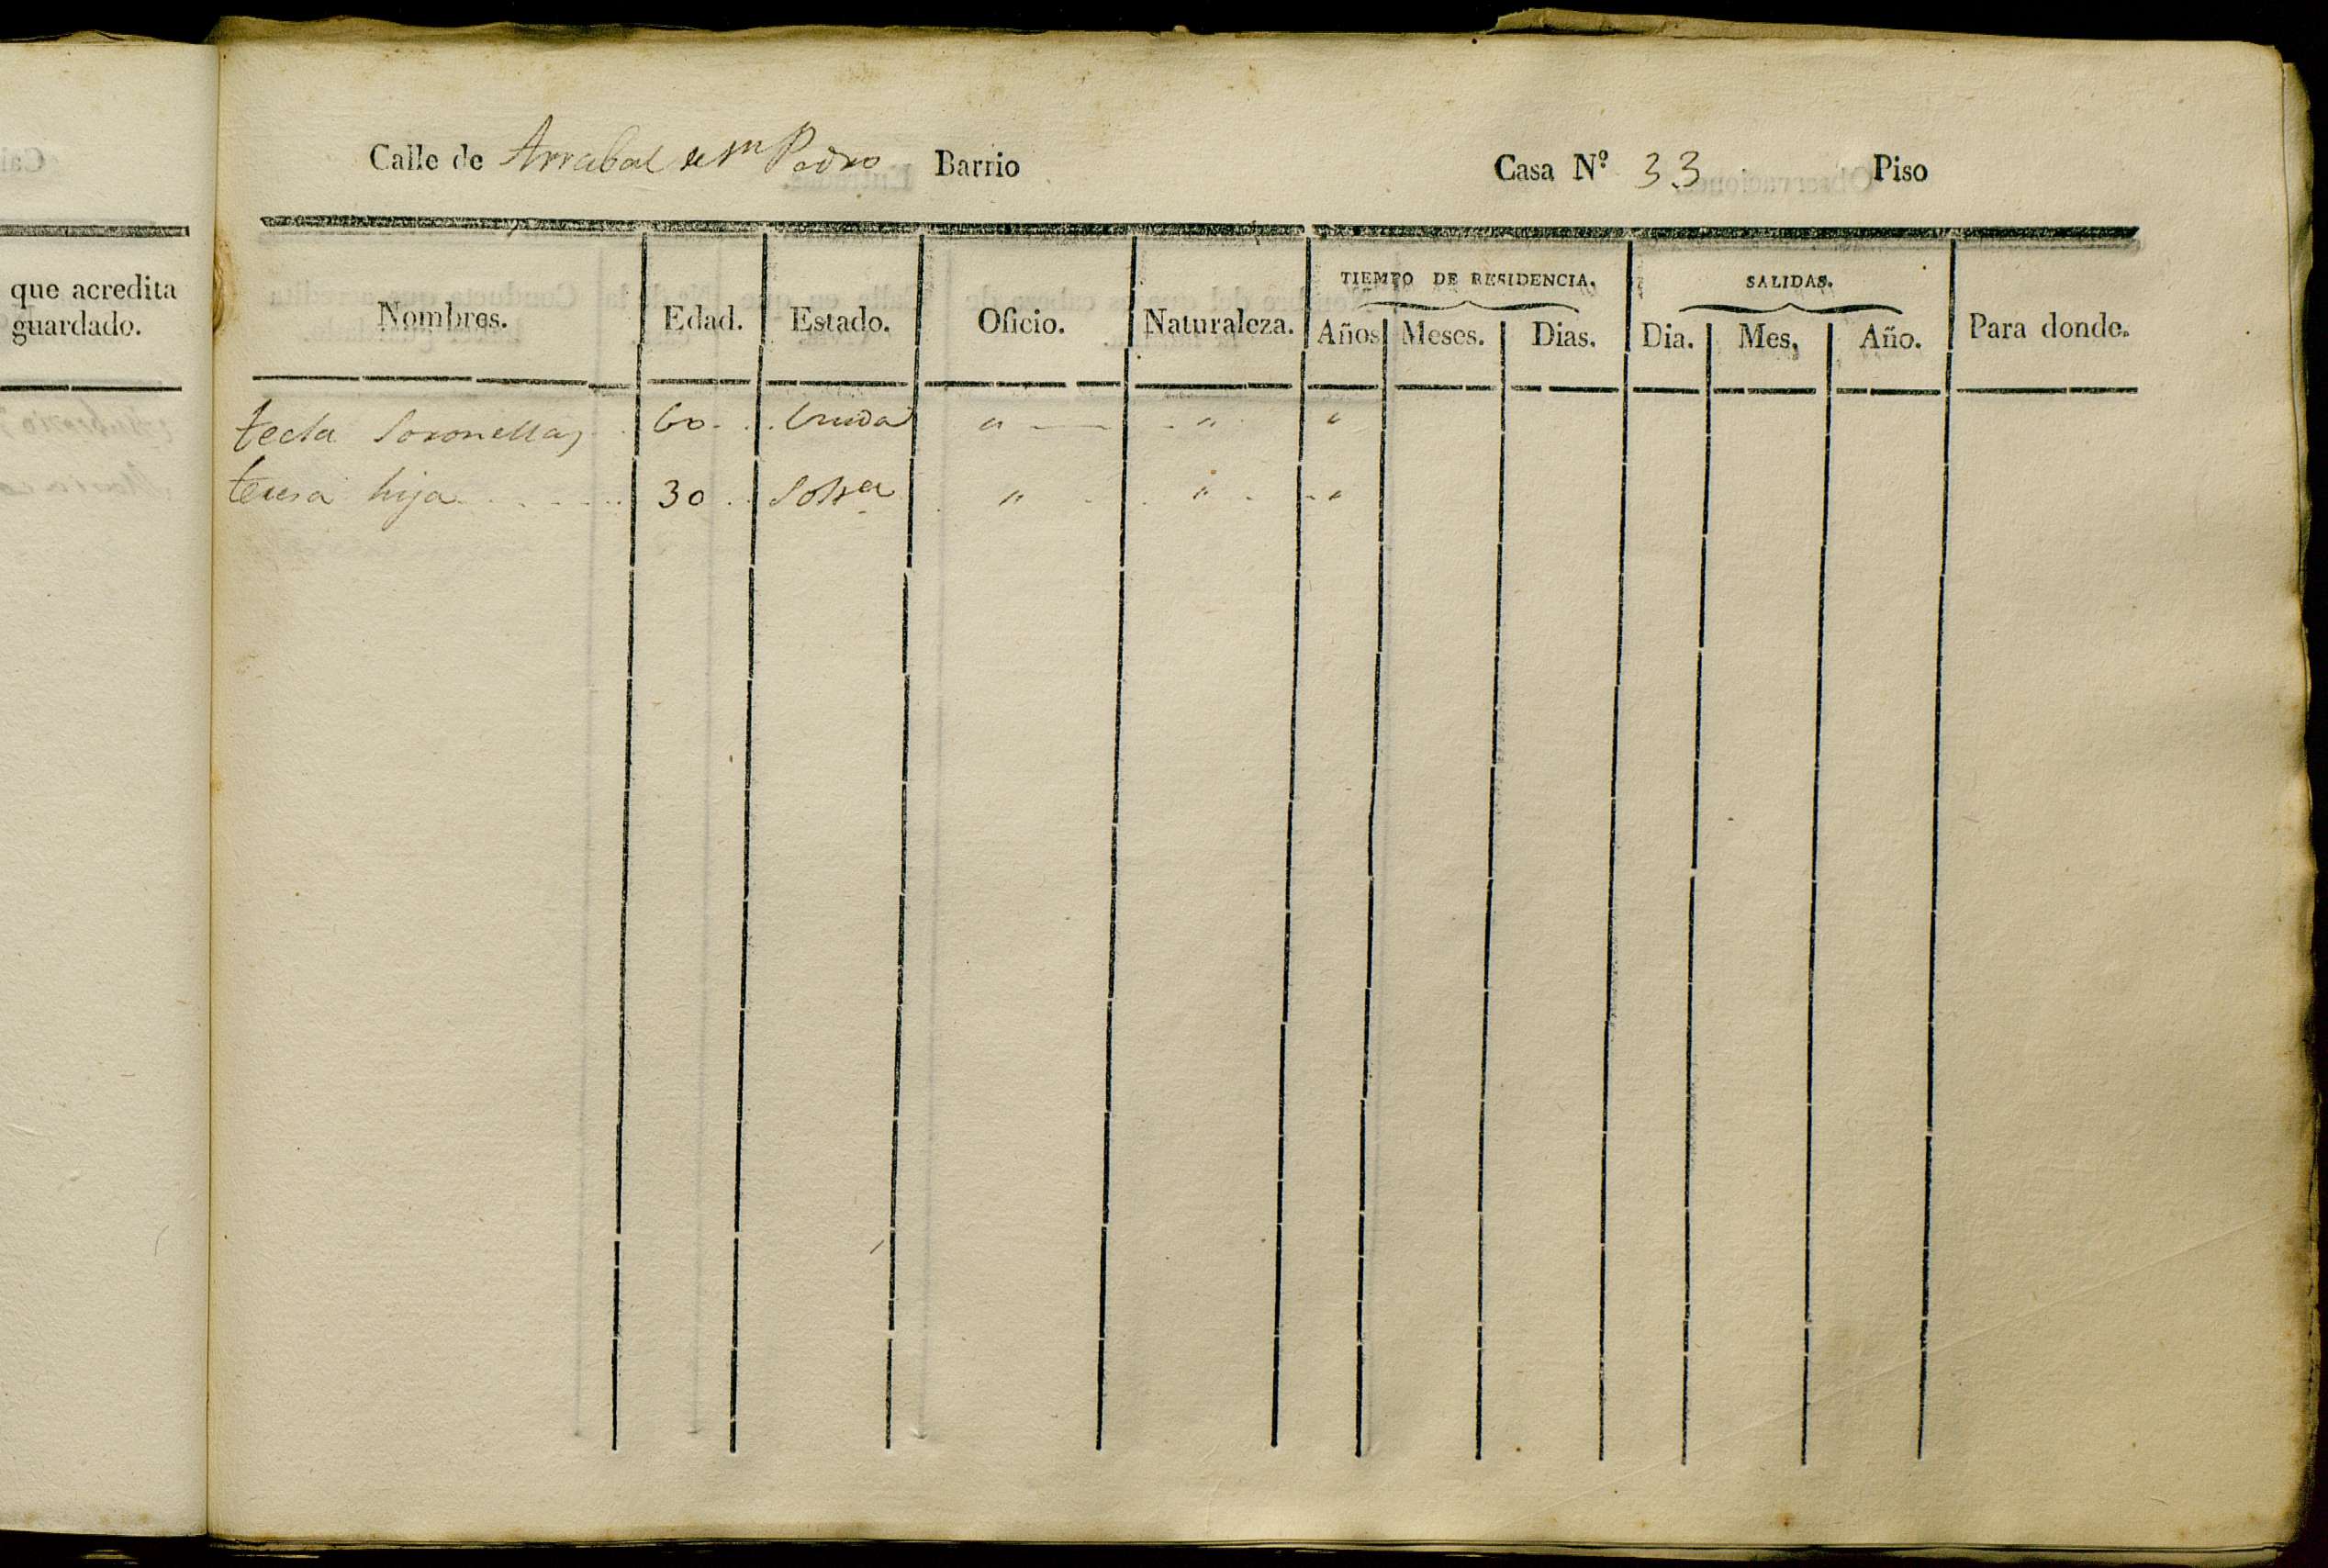 que acredita
guardado.
Calle de Arrabal de Sn Pedro Barrio Casa Nº 33 Piso
Nombres. Edad. Estado. Oficio. Naturaleza. TIEMPO DE RESIDENCIA. Años Meses. Dias. SALIDAS. Dia. Mes. Año. Para donde.
tecla Soronellas 60 Viuda " " "
teresa hija 30 Soltra " " "